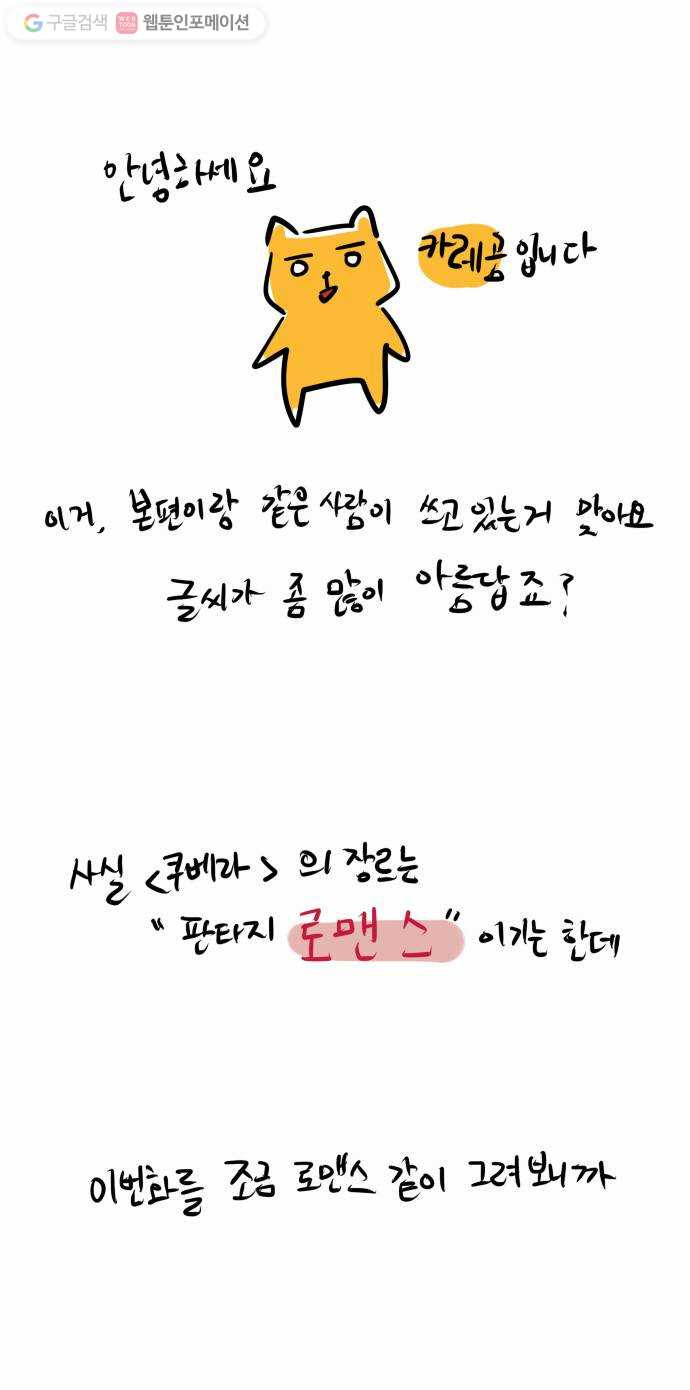 구글검색 WEB TOON 웹툰인포메이션
안녕하세요
카레곰입니다
이거, 본편이랑 같은 사람이 쓰고 있는거 맞아요
글씨가 좀 많이 아름답죠?
사실 <쿠베라> 의 장르는
"판타지 로맨스" 이기는 한데
이번화를 조금 로맨스 같이 그려보니까